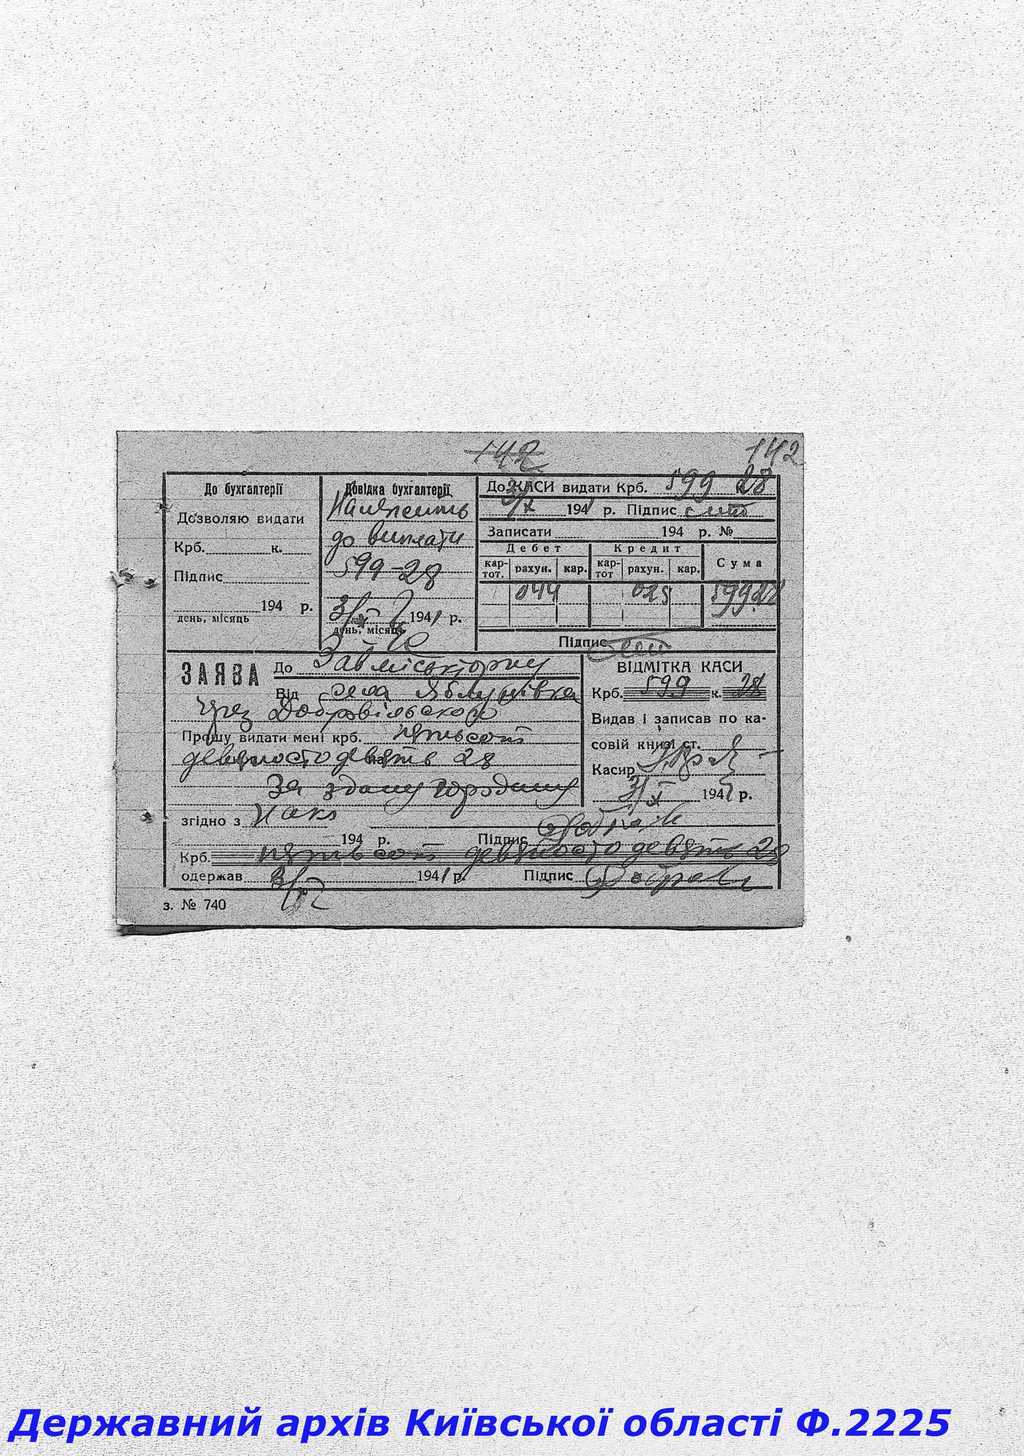 142 142
До бухгалтерії
Дозволяю видати
Крб. к.
Підпис
194 р.
день, місяць
Довідка бухгалтерії
Належить
до виплати
599-28
3/X 1941 р.
день, місяць
До КАСИ видати Крб. 599 к. 28
3/X 194 р. Підпис
Записати 194 р. №
Дебет Кредит Сума
кар-тот. рахун. кар. кар-тот рахун. кар.
044 025 599 28
Підпис
ЗАЯВА До Завміськторгу
Від села Яблунівка
через Добровільского
Прошу видати мені крб. пятьсот
девяносто девять 28
За здану городину
згідно з
194 р. Підпис
Крб. пятьсот девяносто девять 28
одержав 3/X 1941 р. Підпис
ВІДМІТКА КАСИ
Крб. 599 к. 28
Видав і записав по ка-
совій книзі ст.
Касир
3/X 194 р.
з. № 740
Державний архів Київської області Ф.2225